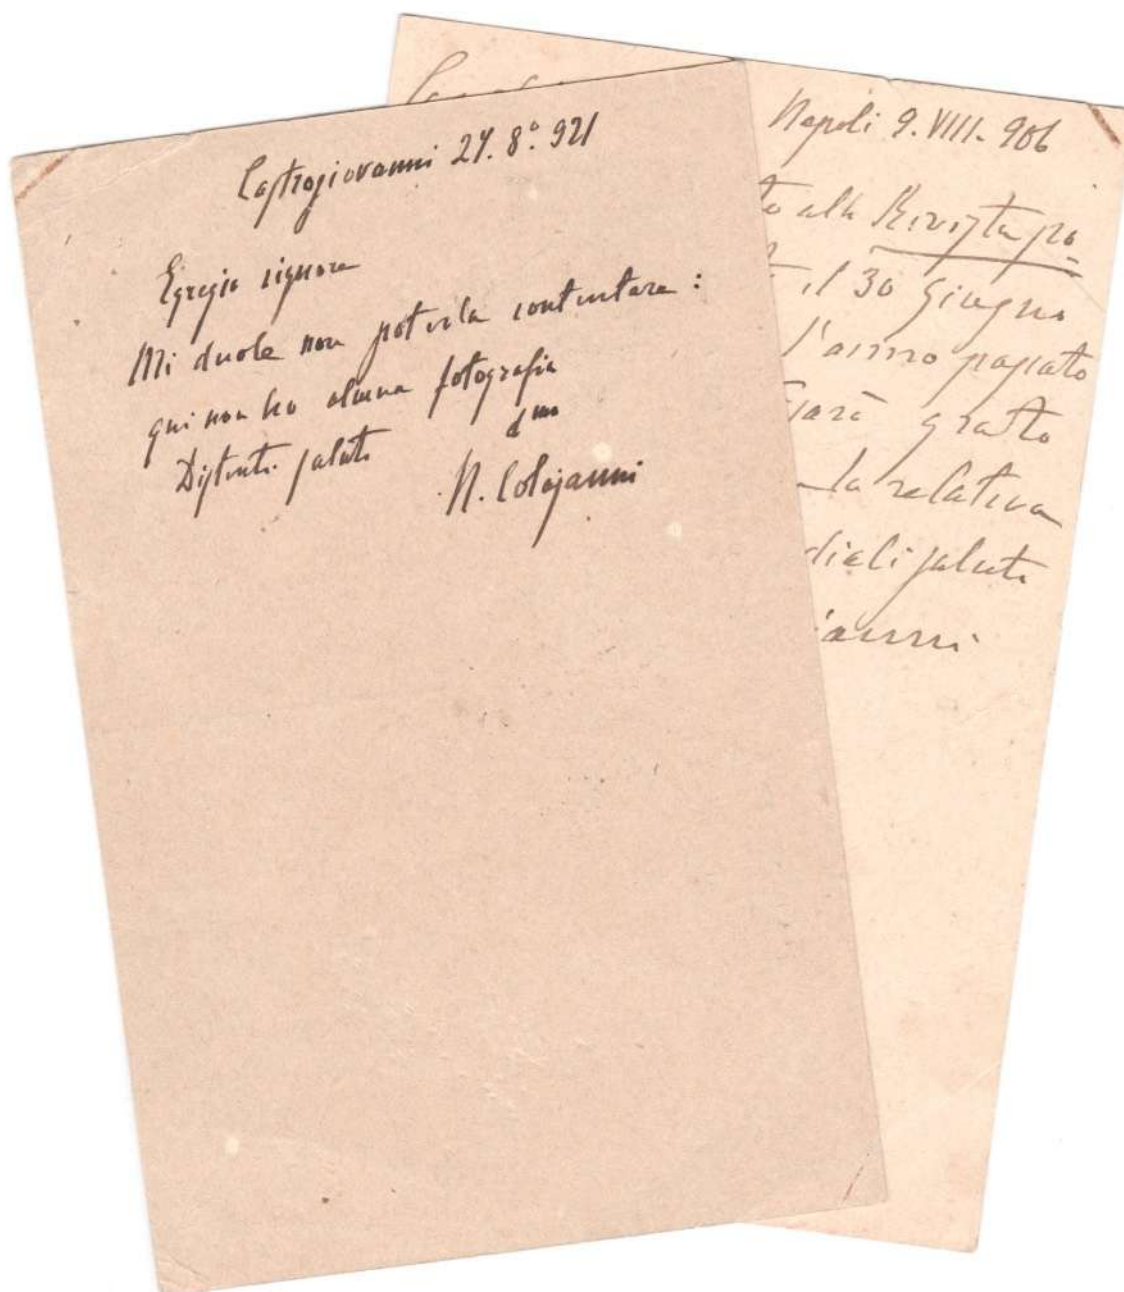 Castrogiovanni 27. 8.° 921
Egregio signore
Mi duole non poterla contentare:
qui non ho alcuna fotografia
Distinti saluti
dmo
N. Colajanni
Napoli 9. VIII. 906
to alla Rivista po
il 30 Giugno
l'anno passato
Sarà grato
la relativa
diali saluti
ianni